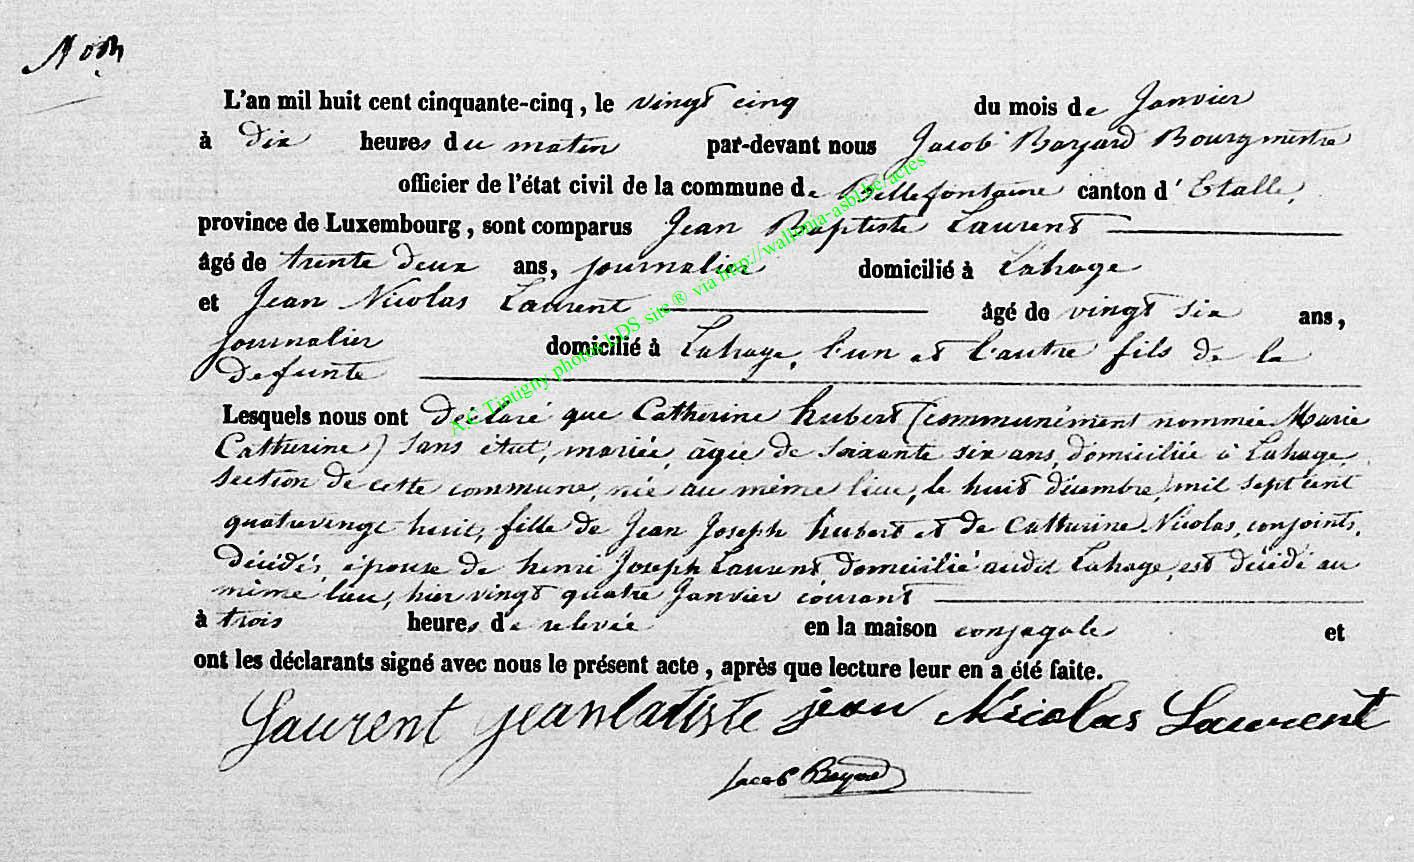 L'an mil huit cent cinquante-cinq, le vingt cinq du mois de Janvier
à dix heures du matin par-devant nous Jacob Bayard Bourgmestre
officier de l'état civil de la commune de Bellefontaine canton d'Etalle,
province de Luxembourg, sont comparus Jean Baptiste Laurent
âgé de trente deux ans, journalier domicilié à Lahage
et Jean Nicolas Laurent âgé de vingt six ans,
journalier domicilié à Lahage, l'un et l'autre fils de la
défunte
Lesquels nous ont déclaré que Catherine hubert (communément nommée Marie
Catherine) sans état, mariée, âgée de soixante six ans, domiciliée à Lahage,
section de cette commune, née au même lieu, le huit décembre mil sept cent
quatrevingt huit, fille de Jean Joseph hubert et de Catherine Nicolas, conjoints,
décédés, épouse de henri Joseph Laurent domicilié audit Lahage, est décédé au
même lieu, hier vingt quatre Janvier courant
à trois heures de relevée en la maison conjugale et
ont les déclarants signé avec nous le présent acte, après que lecture leur en a été faite.
Laurent jean batiste jean Nicolas Laurent
Jacob Bayard
AC Tintigny photos LDS site ® via http://wallonia-asbl.be/actes